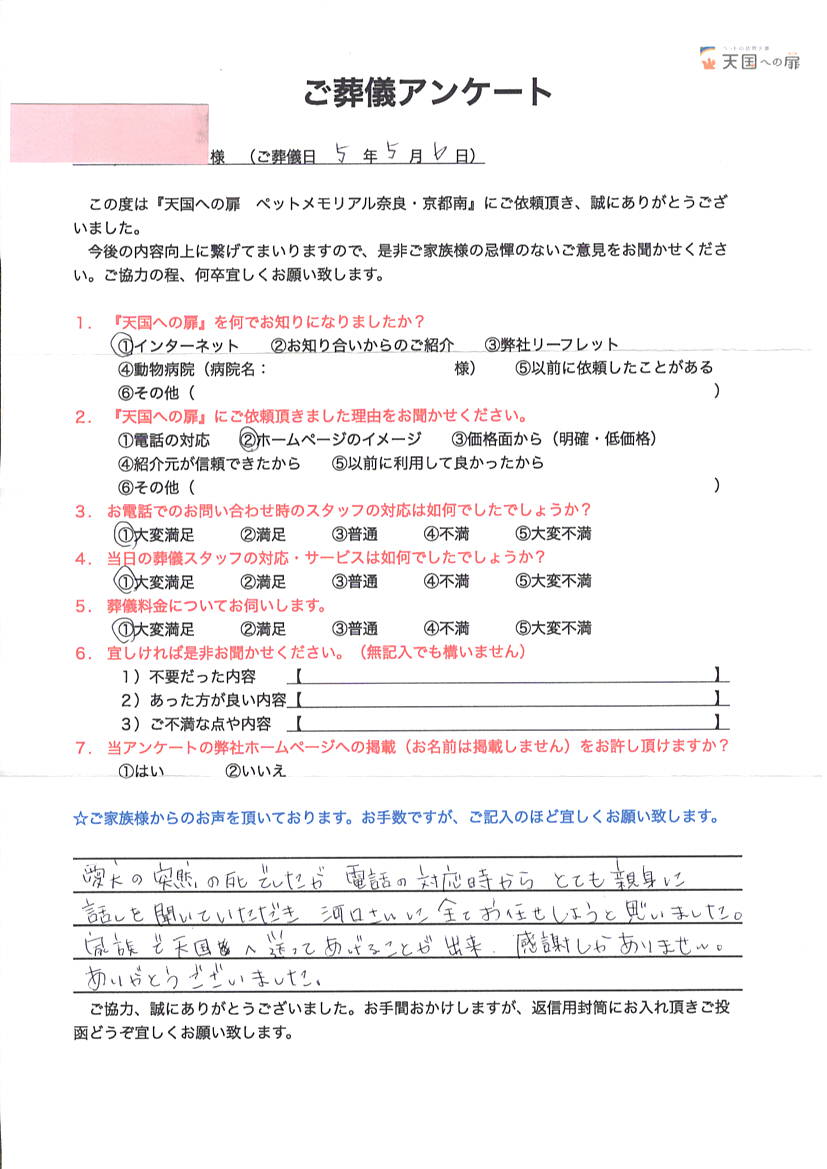 天国への扉
ご葬儀アンケート
様 （ご葬儀日 5 年 5 月 6 日）
この度は『天国への扉 ペットメモリアル奈良・京都南』にご依頼頂き、誠にありがとうござ
いました。
今後の内容向上に繋げてまいりますので、是非ご家族様の忌憚のないご意見をお聞かせくださ
い。ご協力の程、何卒宜しくお願い致します。
1. 『天国への扉』を何でお知りになりましたか？
①インターネット ②お知り合いからのご紹介 ③弊社リーフレット
④動物病院（病院名： 様） ⑤以前に依頼したことがある
⑥その他（ ）
2. 『天国への扉』にご依頼頂きました理由をお聞かせください。
①電話の対応 ②ホームページのイメージ ③価格面から（明確・低価格）
④紹介元が信頼できたから ⑤以前に利用して良かったから
⑥その他（ ）
3. お電話でのお問い合わせ時のスタッフの対応は如何でしたでしょうか？
①大変満足 ②満足 ③普通 ④不満 ⑤大変不満
4. 当日の葬儀スタッフの対応・サービスは如何でしたでしょうか？
①大変満足 ②満足 ③普通 ④不満 ⑤大変不満
5. 葬儀料金についてお伺いします。
①大変満足 ②満足 ③普通 ④不満 ⑤大変不満
6. 宜しければ是非お聞かせください。（無記入でも構いません）
1）不要だった内容 【 】
2）あった方が良い内容【 】
3）ご不満な点や内容 【 】
7. 当アンケートの弊社ホームページへの掲載（お名前は掲載しません）をお許し頂けますか？
①はい ②いいえ
☆ご家族様からのお声を頂いております。お手数ですが、ご記入のほど宜しくお願い致します。
愛犬の突然の死でしたが 電話の対応時から とても親身に
話しを聞いていただき 河口さんに全てお任せしようと思いました。
家族で天国へ送ってあげることが出来、感謝しかありません。
ありがとうございました。
ご協力、誠にありがとうございました。お手間おかけしますが、返信用封筒にお入れ頂きご投
函どうぞ宜しくお願い致します。